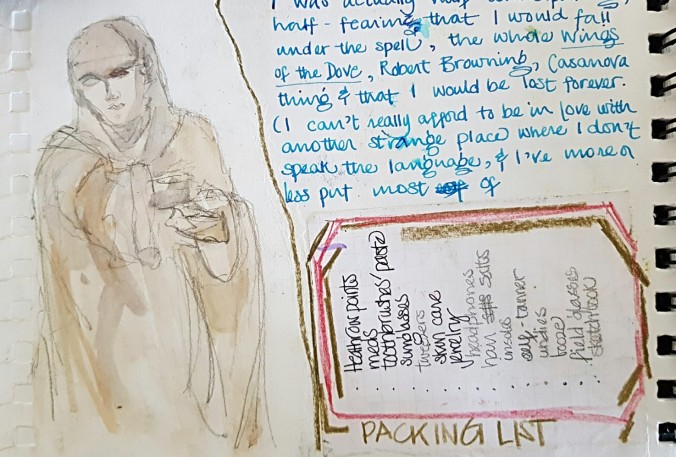 I was actually half
half-fearing that I would fall
under the spell, the whole Wings
of the Dove, Robert Browning, Casanova
thing & that I would be lost forever.
(I can't really afford to be in love with
another strange place where I don't
speak the language, & I've more or
less put most of
Heathrow
meds
toothbrushes/paste
sunglasses
tweezers
skin care
jewelry
headphones
hair
insoles
self-tanner
undies
booze
field glasses
sketchbook
PACKING LIST